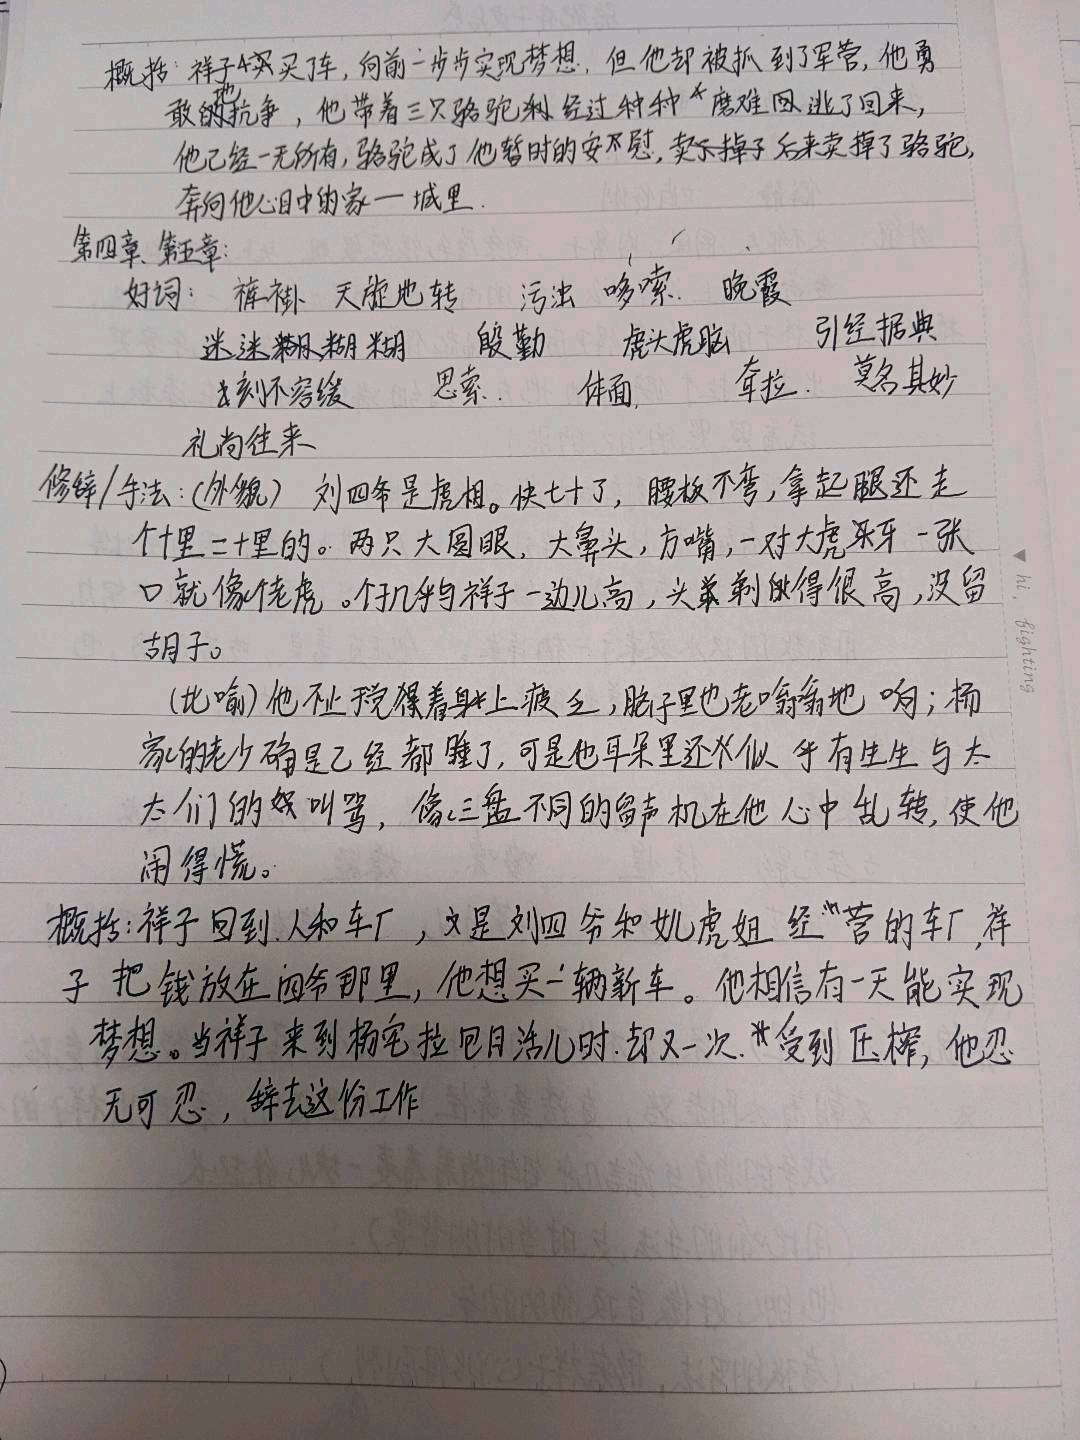 概括：祥子买了车，向前一步步实现梦想，但他却被抓到了军营，他勇
敢地抗争，他带着三只骆驼经过种种磨难逃了回来，
他已经一无所有，骆驼成了他暂时的安慰，后来卖掉了骆驼，
奔向他心目中的家一城里.
第四章、第五章：
好词： 裤褂 天旋地转 污浊 哆嗦. 晚霞
迷迷糊糊 殷勤 虎头虎脑 引经据典
刻不容缓 思索. 体面, 耷拉. 莫名其妙
礼尚往来
修辞/手法：（外貌） 刘四爷是虎相。快七十了，腰板不弯，拿起腿还走
个十里二十里的。两只大圆眼，大鼻头，方嘴，一对大虎牙一张
口就像个老虎。个子几乎与祥子一边儿高，头剃得很高，没留
胡子。
（比喻）他不止于觉得着身上疲乏，脑子里也老嗡嗡地响；杨
家的老少确是已经都睡了，可是他耳朵里还似乎有先生与太
太们的叫骂，像三盘不同的留声机在他心中乱转，使他
闹得慌。
概括：祥子回到人和车厂，是刘四爷和女儿虎妞经营的车厂，祥
子把钱放在四爷那里，他想买一辆新车。他相信有一天能实现
梦想。当祥子来到杨宅拉包月活儿时.却又一次.受到压榨，他忍
无可忍，辞去这份工作
hi, fighting